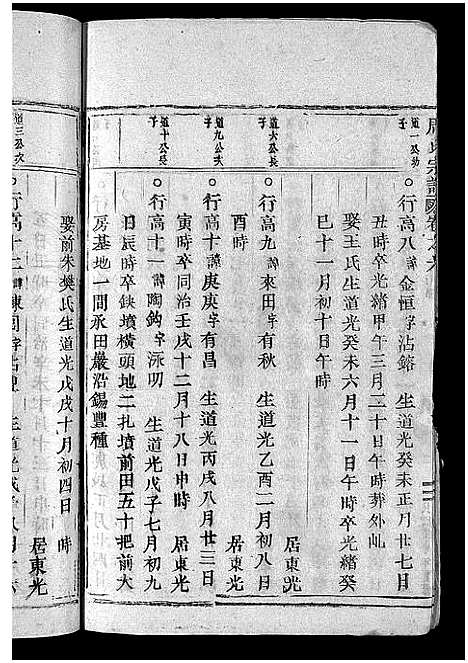 周氏宗譜
道一公幼子
○行高八諱金恒字沾鎔　生道光癸未正月廿七日
丑時卒光緒甲午三月二十日午時葬外屾
娶王氏生道光癸未六月十一日午時卒光緒癸
巳十一月初十日午時
居東光
道六公長子
○行高九諱來田字有秋　生道光乙酉二月初八日
居東光
道九公次子
○行高十諱庚庚字有昌　生道光丙戌八月廿三日
寅時卒同治壬戌十二月十八日申時　居東光
道十公長子
○行高十一諱陶鈎字泳叨　生道光戊子七月初九
日辰時卒鈌墳橫頭地二扎墳前田五十把前大
房基地一間永田嚴沿錫豐種
娶前朱樊氏生道光戊戌十月初四日　時
居東光
道三公次
○行高十二諱